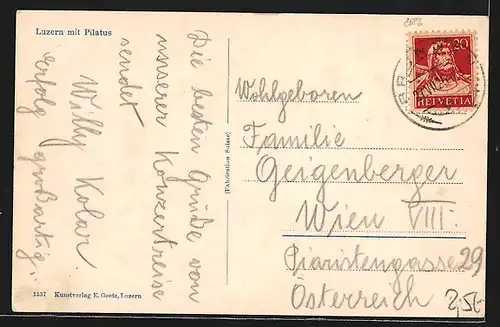 2586
Luzern mit Pilatus
20
HELVETIA
Die besten Grüße von
unserer Konzertreise
sendet
Willy Kolar.
Erfolg großartig.
(Fabrication Suisse)
Wohlgeboren
Familie
Geigenberger
Wien VIII.
Piaristengasse 29
Österreich
2,50
1537 Kunstverlag E. Goetz, Luzern